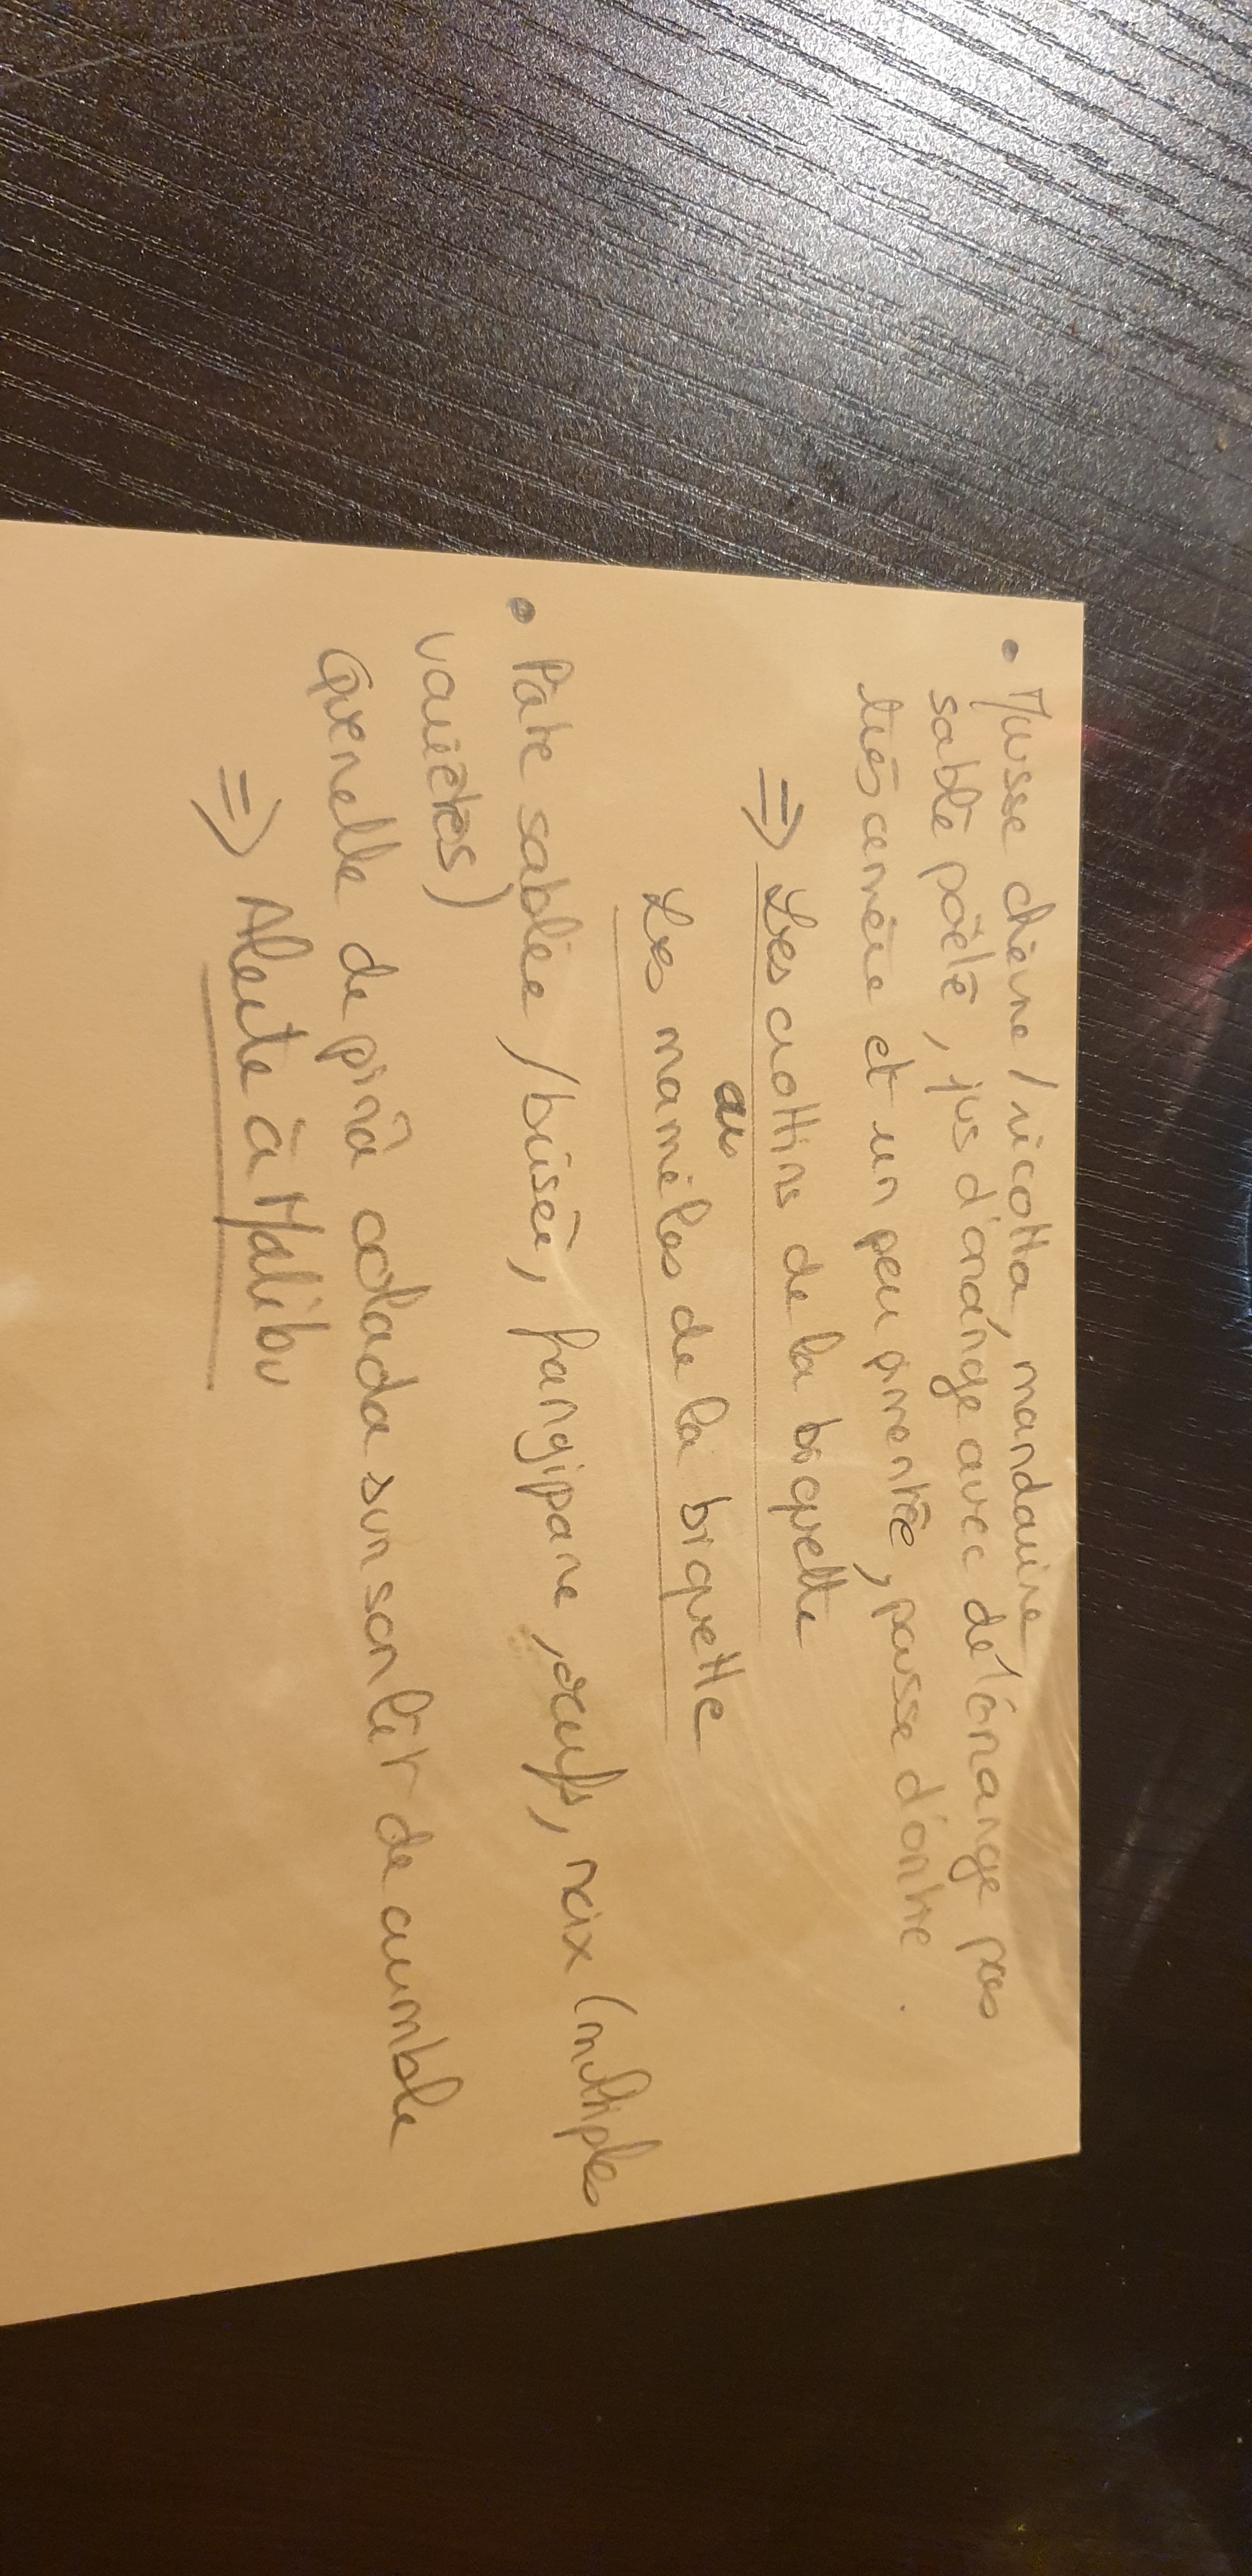 • Musse chèvre / ricotta, mandarine
sablé poêlé, jus d'orange avec de l'orange pas
très amère et un peu pimentée, pousse d'ortie.
=> Les crottins de la biquette
ou
Les mamèles de la biquette
• Pâte sablée / brisée, frangipane, oeufs, noix (multiples
variétés)
Quenelle de pina colada sur son lit de crumble
=> Alerte à Malibu